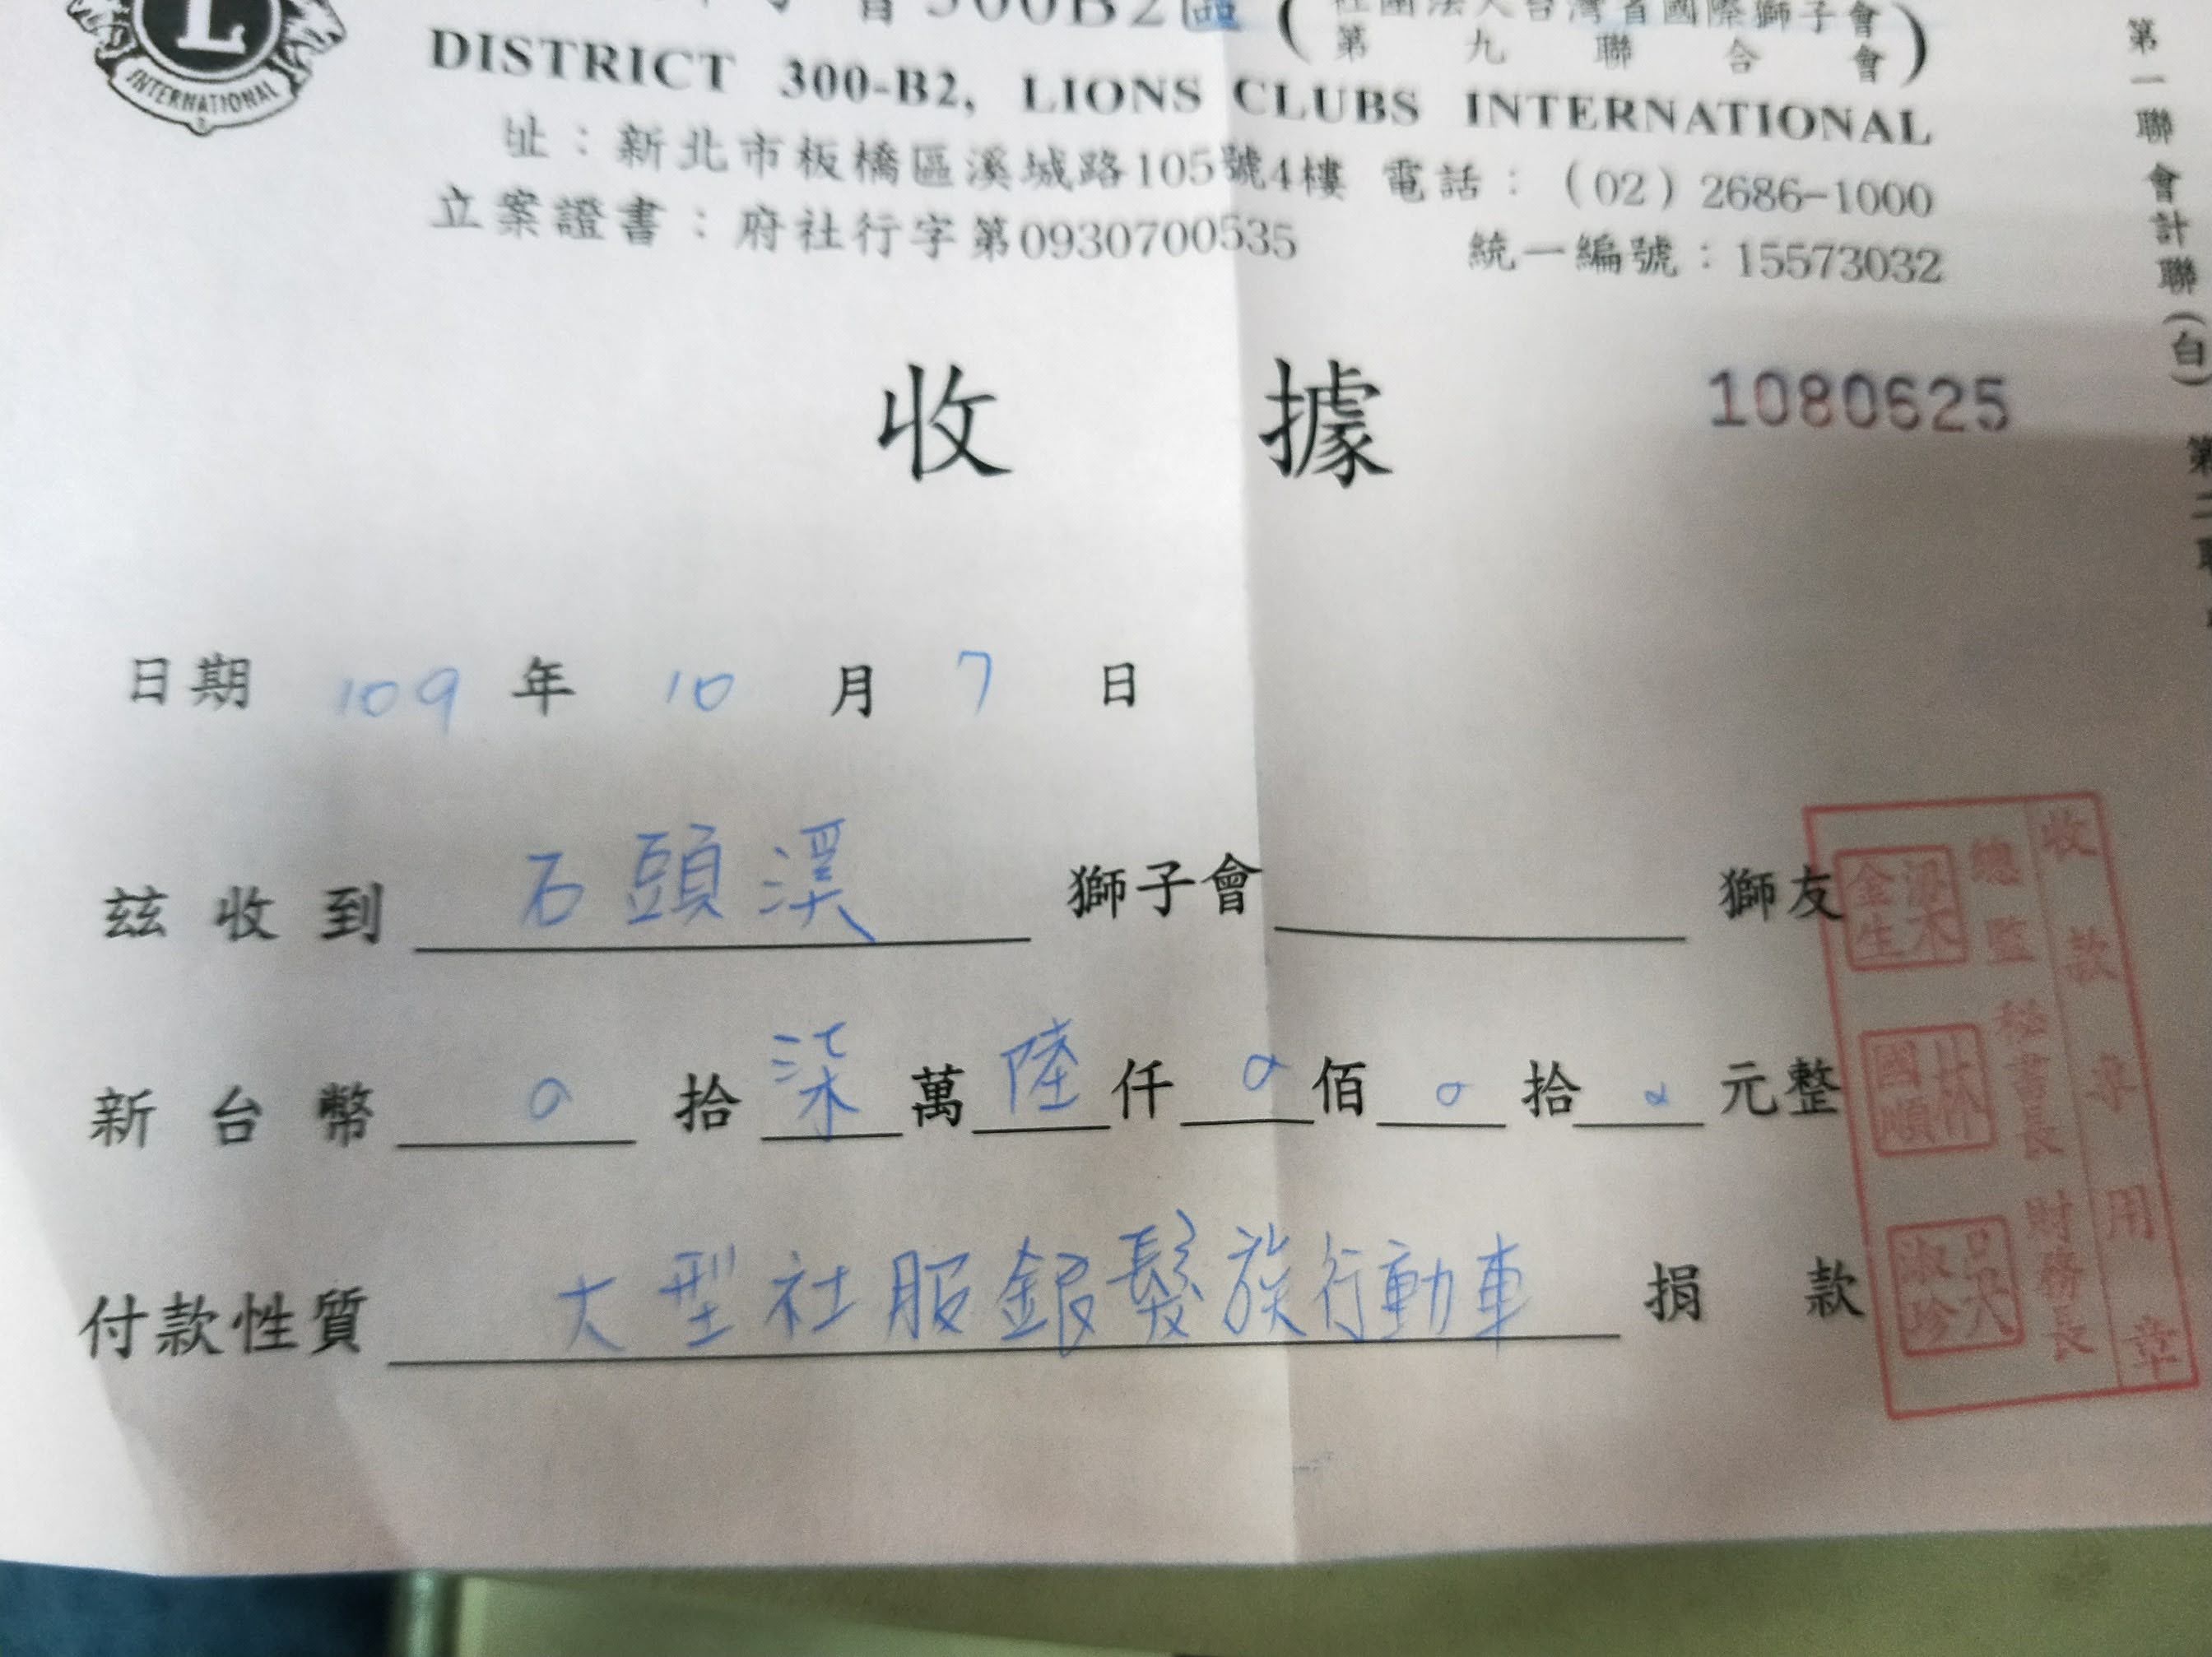 300B2區
社團法人台灣省國際獅子會
第九聯合會
L
INTERNATIONAL
DISTRICT 300-B2, LIONS CLUBS INTERNATIONAL
址：新北市板橋區溪城路105號4樓 電話：（02）2686-1000
立案證書：府社行字第0930700535 統一編號：15573032
收據
1080625
日期 109 年 10 月 7 日
茲收到 石頭溪 獅子會 獅友
新台幣 0 拾 柒 萬 陸 仟 0 佰 0 拾 0 元整
付款性質 大型社服銀髮族行動車 捐款
收款專用章
總監 梁金生
秘書長 林國順
財務長 呂淑珍
第一聯會計聯(白) 第二聯